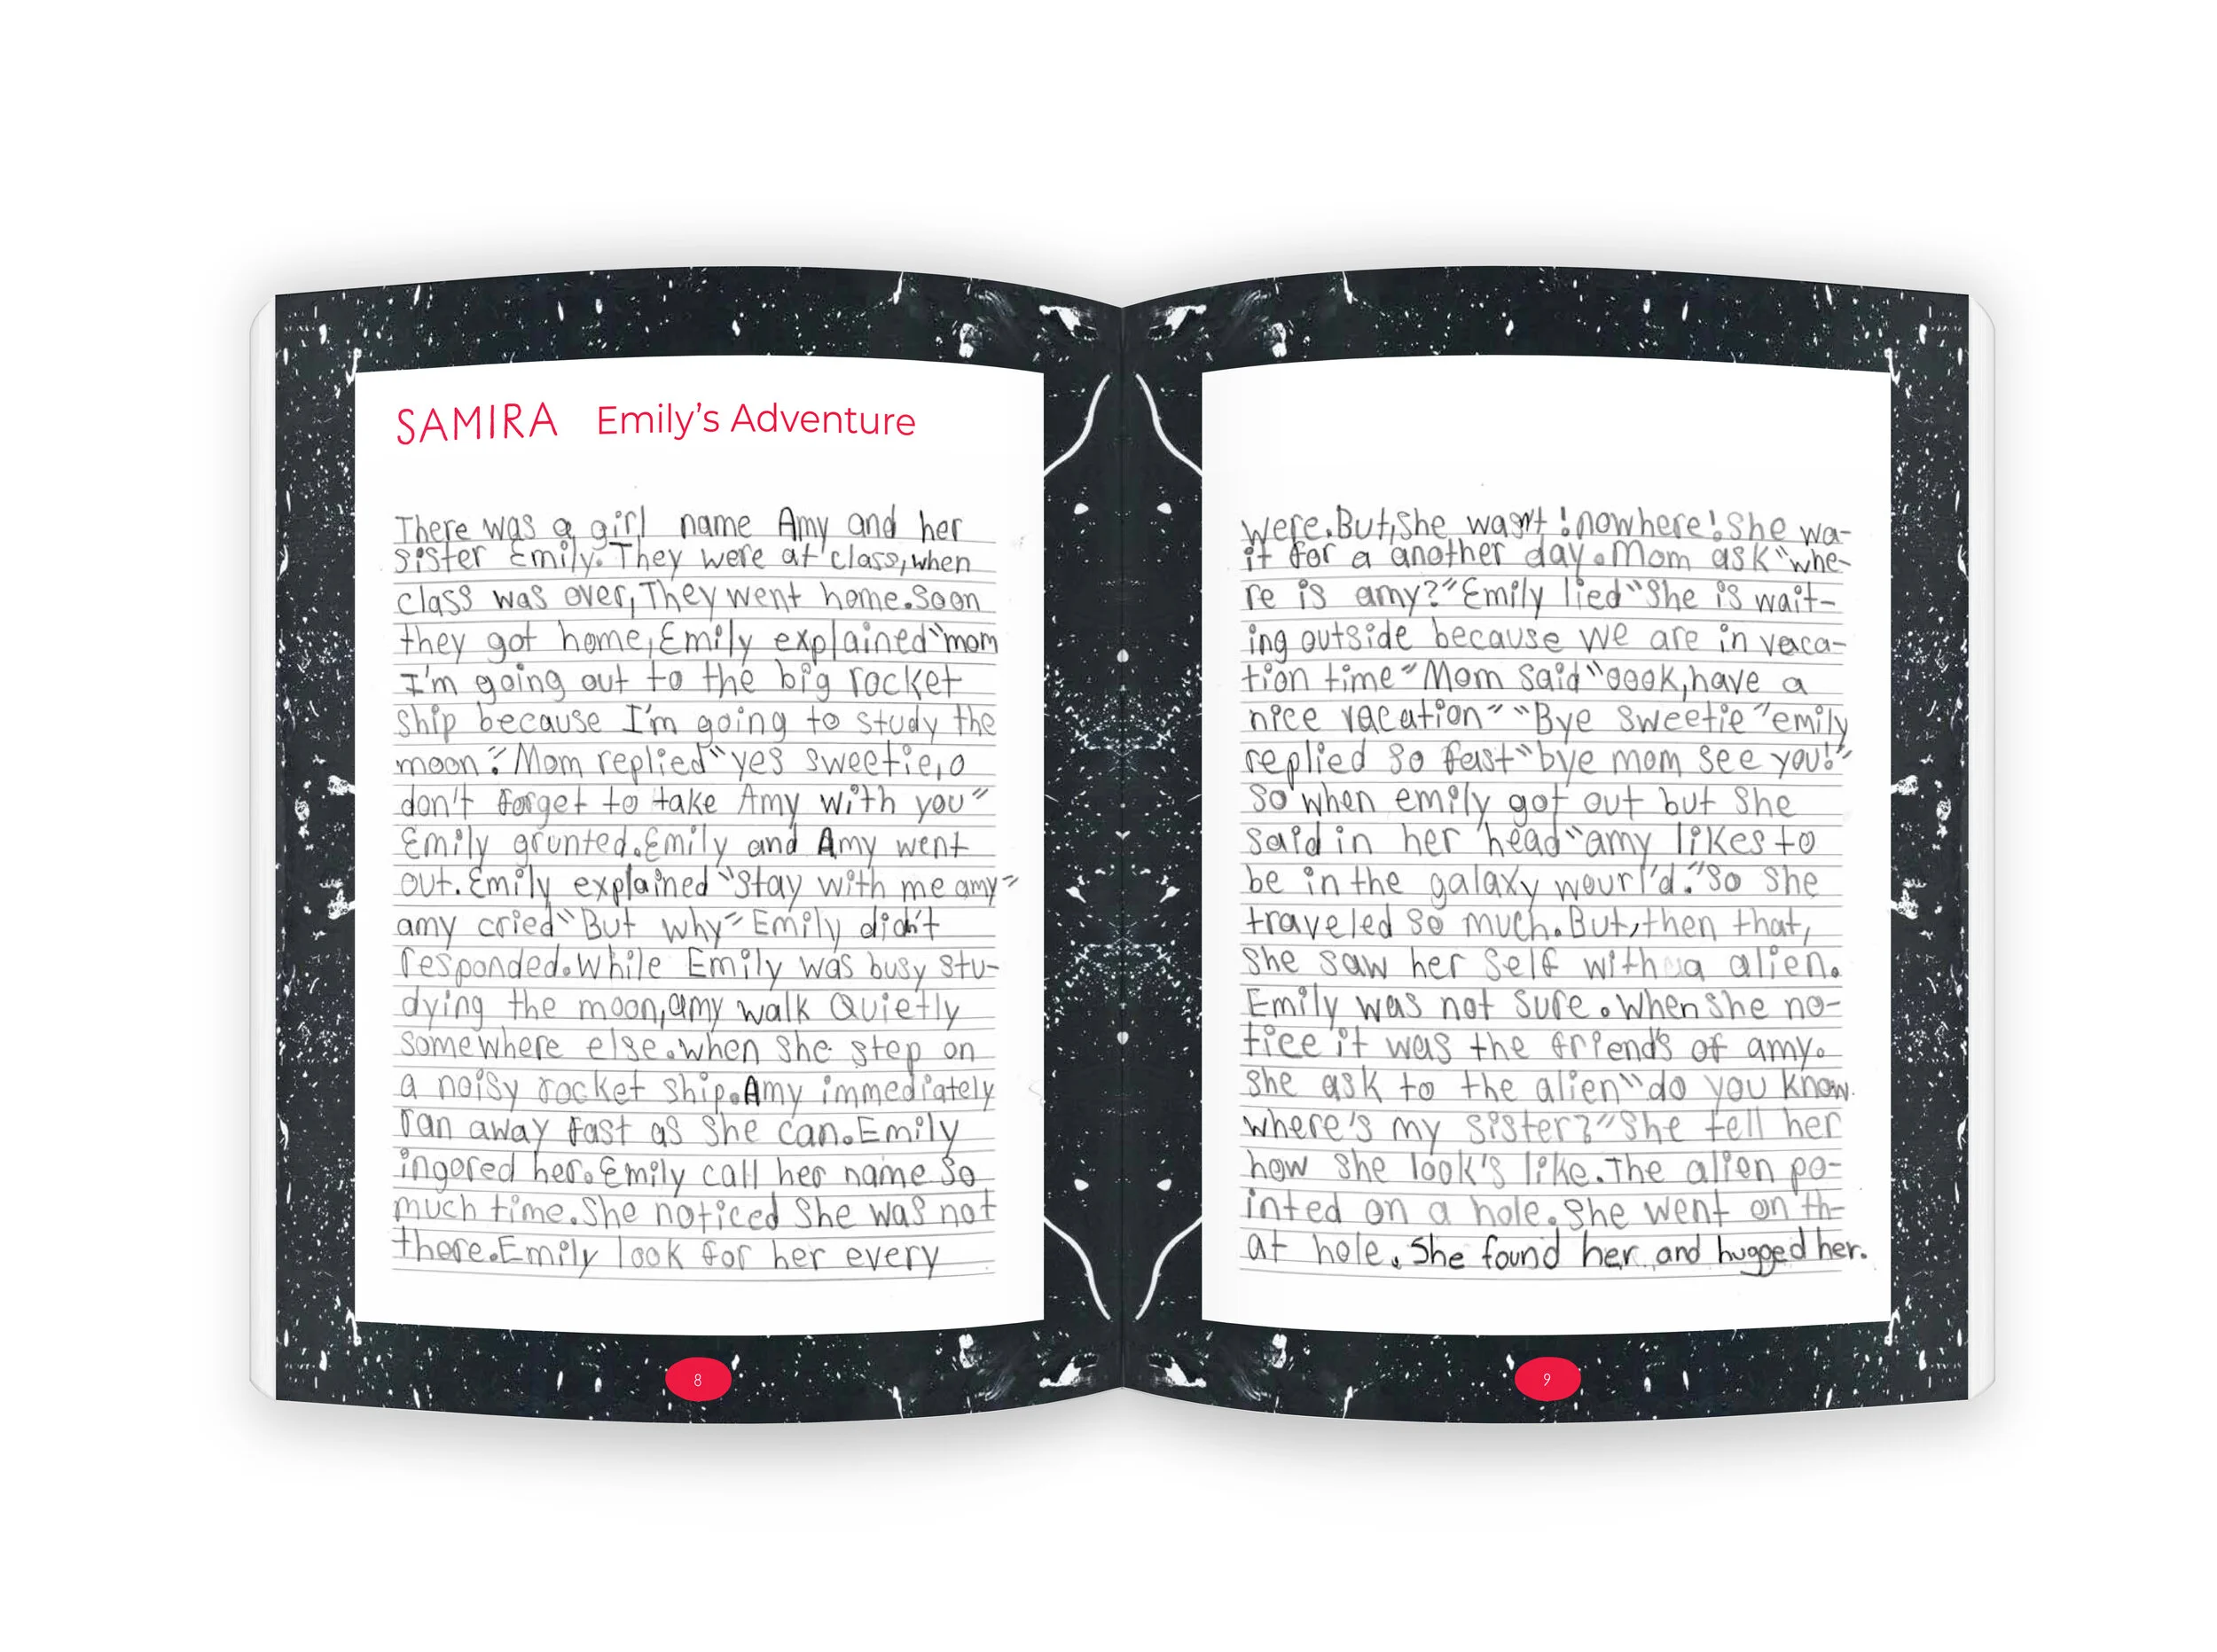 SAMIRA Emily's Adventure
There was a girl name Amy and her
sister Emily. They were at class, when
class was over, They went home. Soon
they got home, Emily explained "mom
I'm going out to the big rocket
ship because I'm going to study the
moon." Mom replied "yes sweetie, o
don't forget to take Amy with you"
Emily grunted. Emily and Amy went
out. Emily explained "stay with me amy"
amy cried "But why" Emily didn't
responded. While Emily was busy stu-
dying the moon, amy walk Quietly
somewhere else. when she step on
a noisy rocket ship. Amy immediately
ran away fast as she can. Emily
ingored her. Emily call her name so
much time. She noticed she was not
there. Emily look for her every
8
were. But, she wasn't! nowhere! She wa-
it for a another day. Mom ask "whe-
re is amy?" Emily lied "She is wait-
ing outside because we are in vaca-
tion time" Mom said "oook, have a
nice vacation" "Bye sweetie" emily
replied so fast "bye mom see you!"
So when emily got out but she
said in her head "amy likes to
be in the galaxy wourl'd." So she
traveled so much. But, then that,
she saw her self with a alien.
Emily was not sure. When she no-
tice it was the friend's of amy.
she ask to the alien "do you know
where's my sister?" She tell her
how she look's like. The alien po-
inted on a hole. She went on th-
at hole. She found her and hugged her.
9